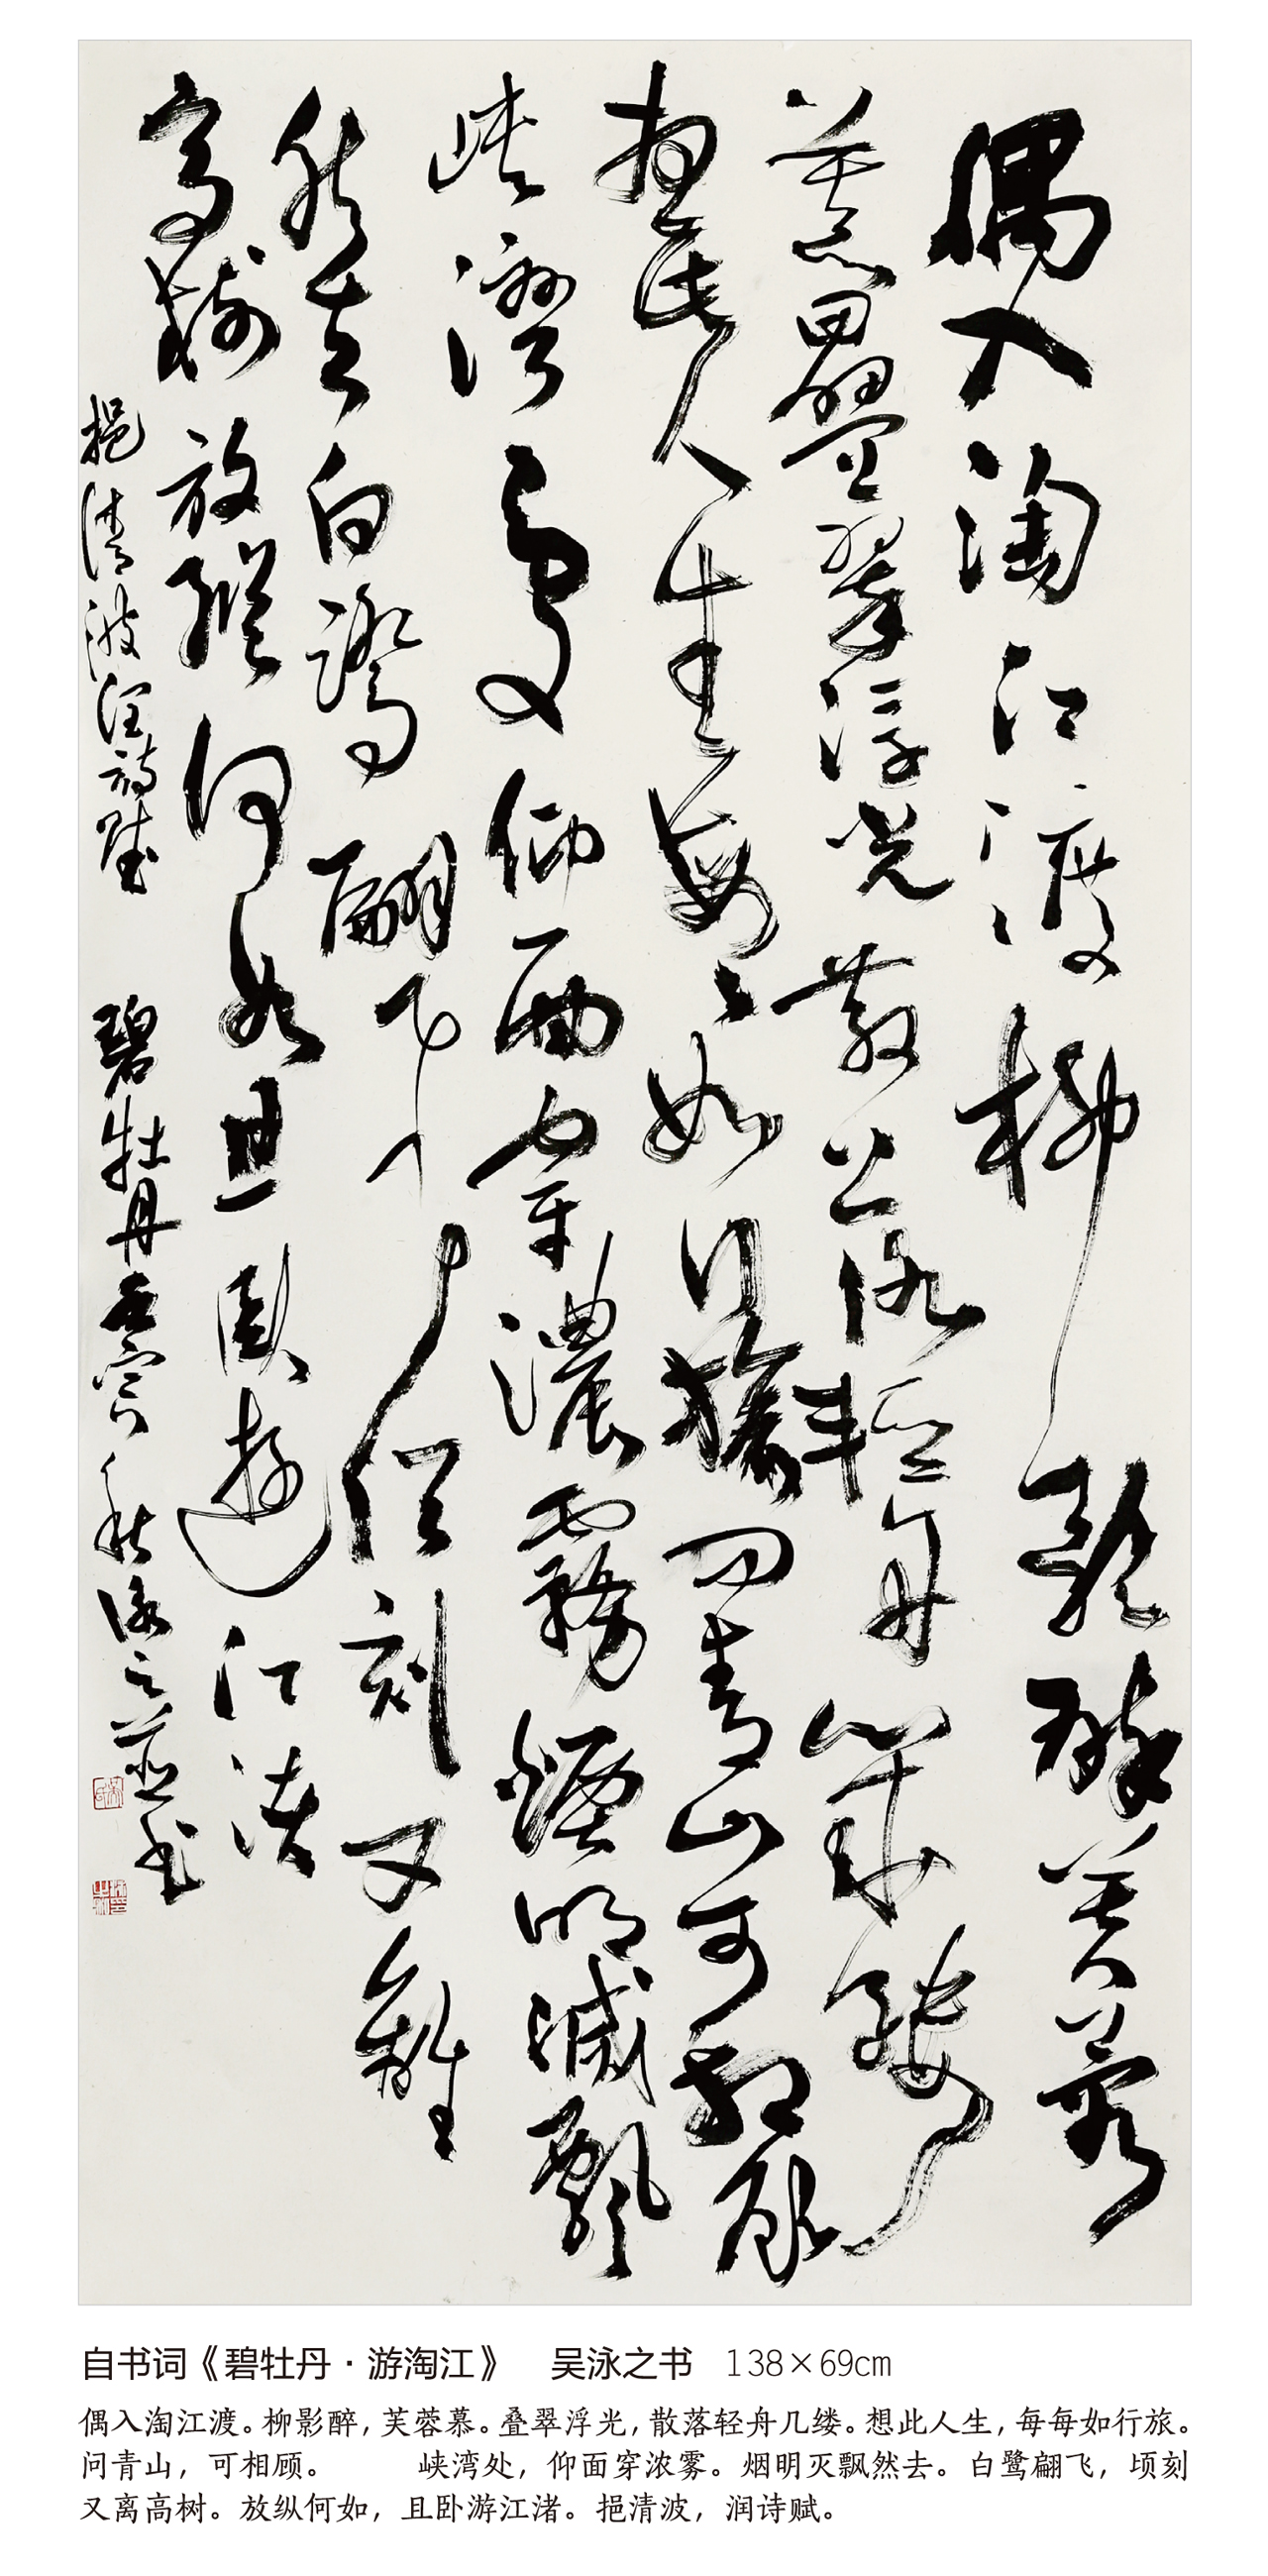 偶入淘江渡柳影醉芙蓉
慕疊翠浮光散落輕舟幾縷
想此人生每々如行旅問青山可相顧
峽灣處仰面穿濃霧煙明滅飄
然去白鷺翩飛頃刻又離
高樹放縱何如且臥遊江渚
挹清波潤詩賦 碧牡丹 壬寅秋泳之並書
自书词《碧牡丹·游淘江》 吴泳之书 138×69cm
偶入淘江渡。柳影醉，芙蓉慕。叠翠浮光，散落轻舟几缕。想此人生，每每如行旅。
问青山，可相顾。 峡湾处，仰面穿浓雾。烟明灭飘然去。白鹭翩飞，顷刻
又离高树。放纵何如，且卧游江渚。挹清波，润诗赋。